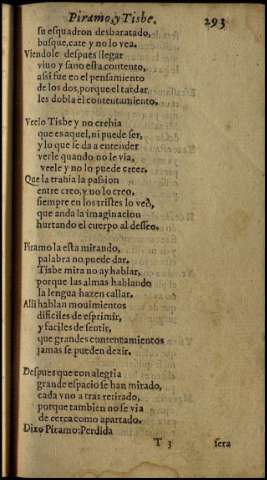 Piramo, y Tisbe. 293
su esquadron desbaratado,
busque, cate y no lo vea.
Viendole despues llegar
vino y sano esta contento,
assi fue en el pensamiento
de los dos, porque el tardar
les dobla el contentamiento.
Veelo Tisbe y no crehia
que es aquel, ni puede ser,
y lo que se da a entender
verle quando no le via,
veele y no lo puede creer.
Que la trahia la passion
entre creo, y no lo creo,
siempre en los tristes lo veo,
que anda la imaginacion
hurtando el cuerpo al desseo.
Piramo la esta mirando,
palabra no puede dar.
Tisbe mira no ay hablar,
porque las almas hablando
la lengua hazen callar.
Alli hablan mouimientos
dificiles de esprimir,
y faciles de sentir,
que grandes contentamientos
jamas se pueden dezir.
Despues que con alegria
grande espacio se han mirado,
cada vno a tras retirado,
porque tambien no se via
de cerca como apartado.
Dixo Piramo: Perdida
T 3 sera